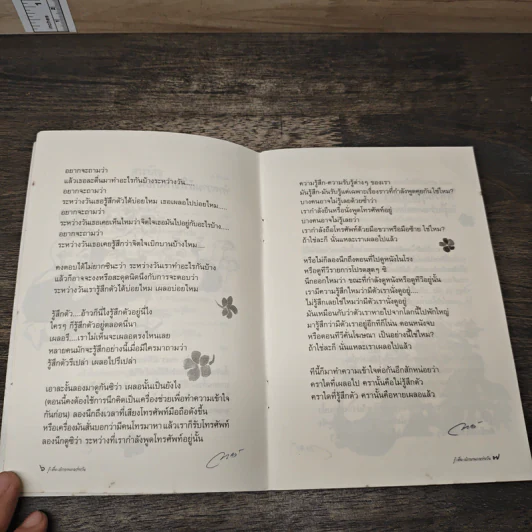 อยากจะถามว่า
แล้วเธอละตื่นมาทำอะไรกันบ้างระหว่างวัน
อยากจะถามว่า
ระหว่างวันเธอรู้สึกตัวได้บ่อยไหม เธอเผลอไปบ่อยไหม....
อยากจะถามว่า
ระหว่างวันเธอเคยเห็นไหมว่าจิตใจเธอมันไปอยู่กับอะไรบ้าง....
อยากจะถามว่า
ระหว่างวันเธอเคยรู้สึกว่าจิตใจเบิกบานบ้างไหม....
คงตอบได้ไม่ยากซินะว่า ระหว่างวันเราทำอะไรกันบ้าง
แล้วก็อาจจะงงหรือสะดุดนิดนึงกับการจะตอบว่า
ระหว่างวันเรารู้สึกตัวได้บ่อยไหม เผลอบ่อยไหม
รู้สึกตัว....อ้าวก็นี่ไงรู้สึกตัวอยู่นี่ไง
ใครๆ ก็รู้สึกตัวอยู่ตลอดนี่นา
เผลอรึ....เราไม่เห็นจะเผลอตรงไหนเลย
หลายคนมักจะรู้สึกอย่างนี้เมื่อมีใครมาถามว่า
รู้สึกตัวรึเปล่า เผลอไปรึเปล่า
เอาละงั้นลองมาดูกันซิว่า เผลอนั้นเป็นยังไง
(ตอนนี้คงต้องใช้การนึกคิดเป็นเครื่องช่วยเพื่อทำความเข้าใจ
กันก่อน) ลองนึกถึงเวลาที่เสียงโทรศัพท์มือถือดังขึ้น
หรือเครื่องมันสั่นบอกว่ามีคนโทรมาหา แล้วเราก็รับโทรศัพท์
ลองนึกดูซิว่า ระหว่างที่เรากำลังพูดโทรศัพท์อยู่นั้น
๖
ความรู้สึก-ความรับรู้ต่างๆ ของเรา
มันรู้สึก-มันรับรู้แต่เฉพาะเรื่องราวที่กำลังพูดคุยกันใช่ไหม?
บางคนอาจไม่รู้เลยด้วยซ้ำว่า
เรากำลังยืนหรือนั่งพูดโทรศัพท์อยู่
บางคนอาจไม่รู้เลยว่า
เรากำลังถือโทรศัพท์ด้วยมือขวาหรือมือซ้าย ใช่ไหม?
ถ้าใช่ล่ะก็ นั่นแหละเราเผลอไปแล้ว
หรือไม่ก็ลองนึกถึงตอนที่ไปดูหนังในโรง
หรือดูทีวีรายการโปรดสุดๆ ซิ
นึกออกไหมว่า ขณะที่กำลังดูหนังหรือดูทีวีอยู่นั้น
เรามีความรู้สึกไหมว่ามีตัวเรานั่งดูอยู่....
ไม่รู้สึกเลยใช่ไหมว่ามีตัวเรานั่งดูอยู่
มันเหมือนกับว่าตัวเราหายไปจากโลกนี้ไปพักใหญ่
มารู้สึกว่ามีตัวเราอยู่อีกทีก็โน่น ตอนหนังจบ
หรือตอนทีวีคั่นโฆษณา เป็นอย่างนี้ใช่ไหม?
ถ้าใช่ล่ะก็ นั่นแหละเราเผลอไปแล้ว
ทีนี้ก็มาทำความเข้าใจต่อกันอีกสักหน่อยว่า
คราใดที่เผลอไป ครานั้นคือไม่รู้สึกตัว
คราใดที่รู้สึกตัว ครานั้นคือหายเผลอแล้ว
๗